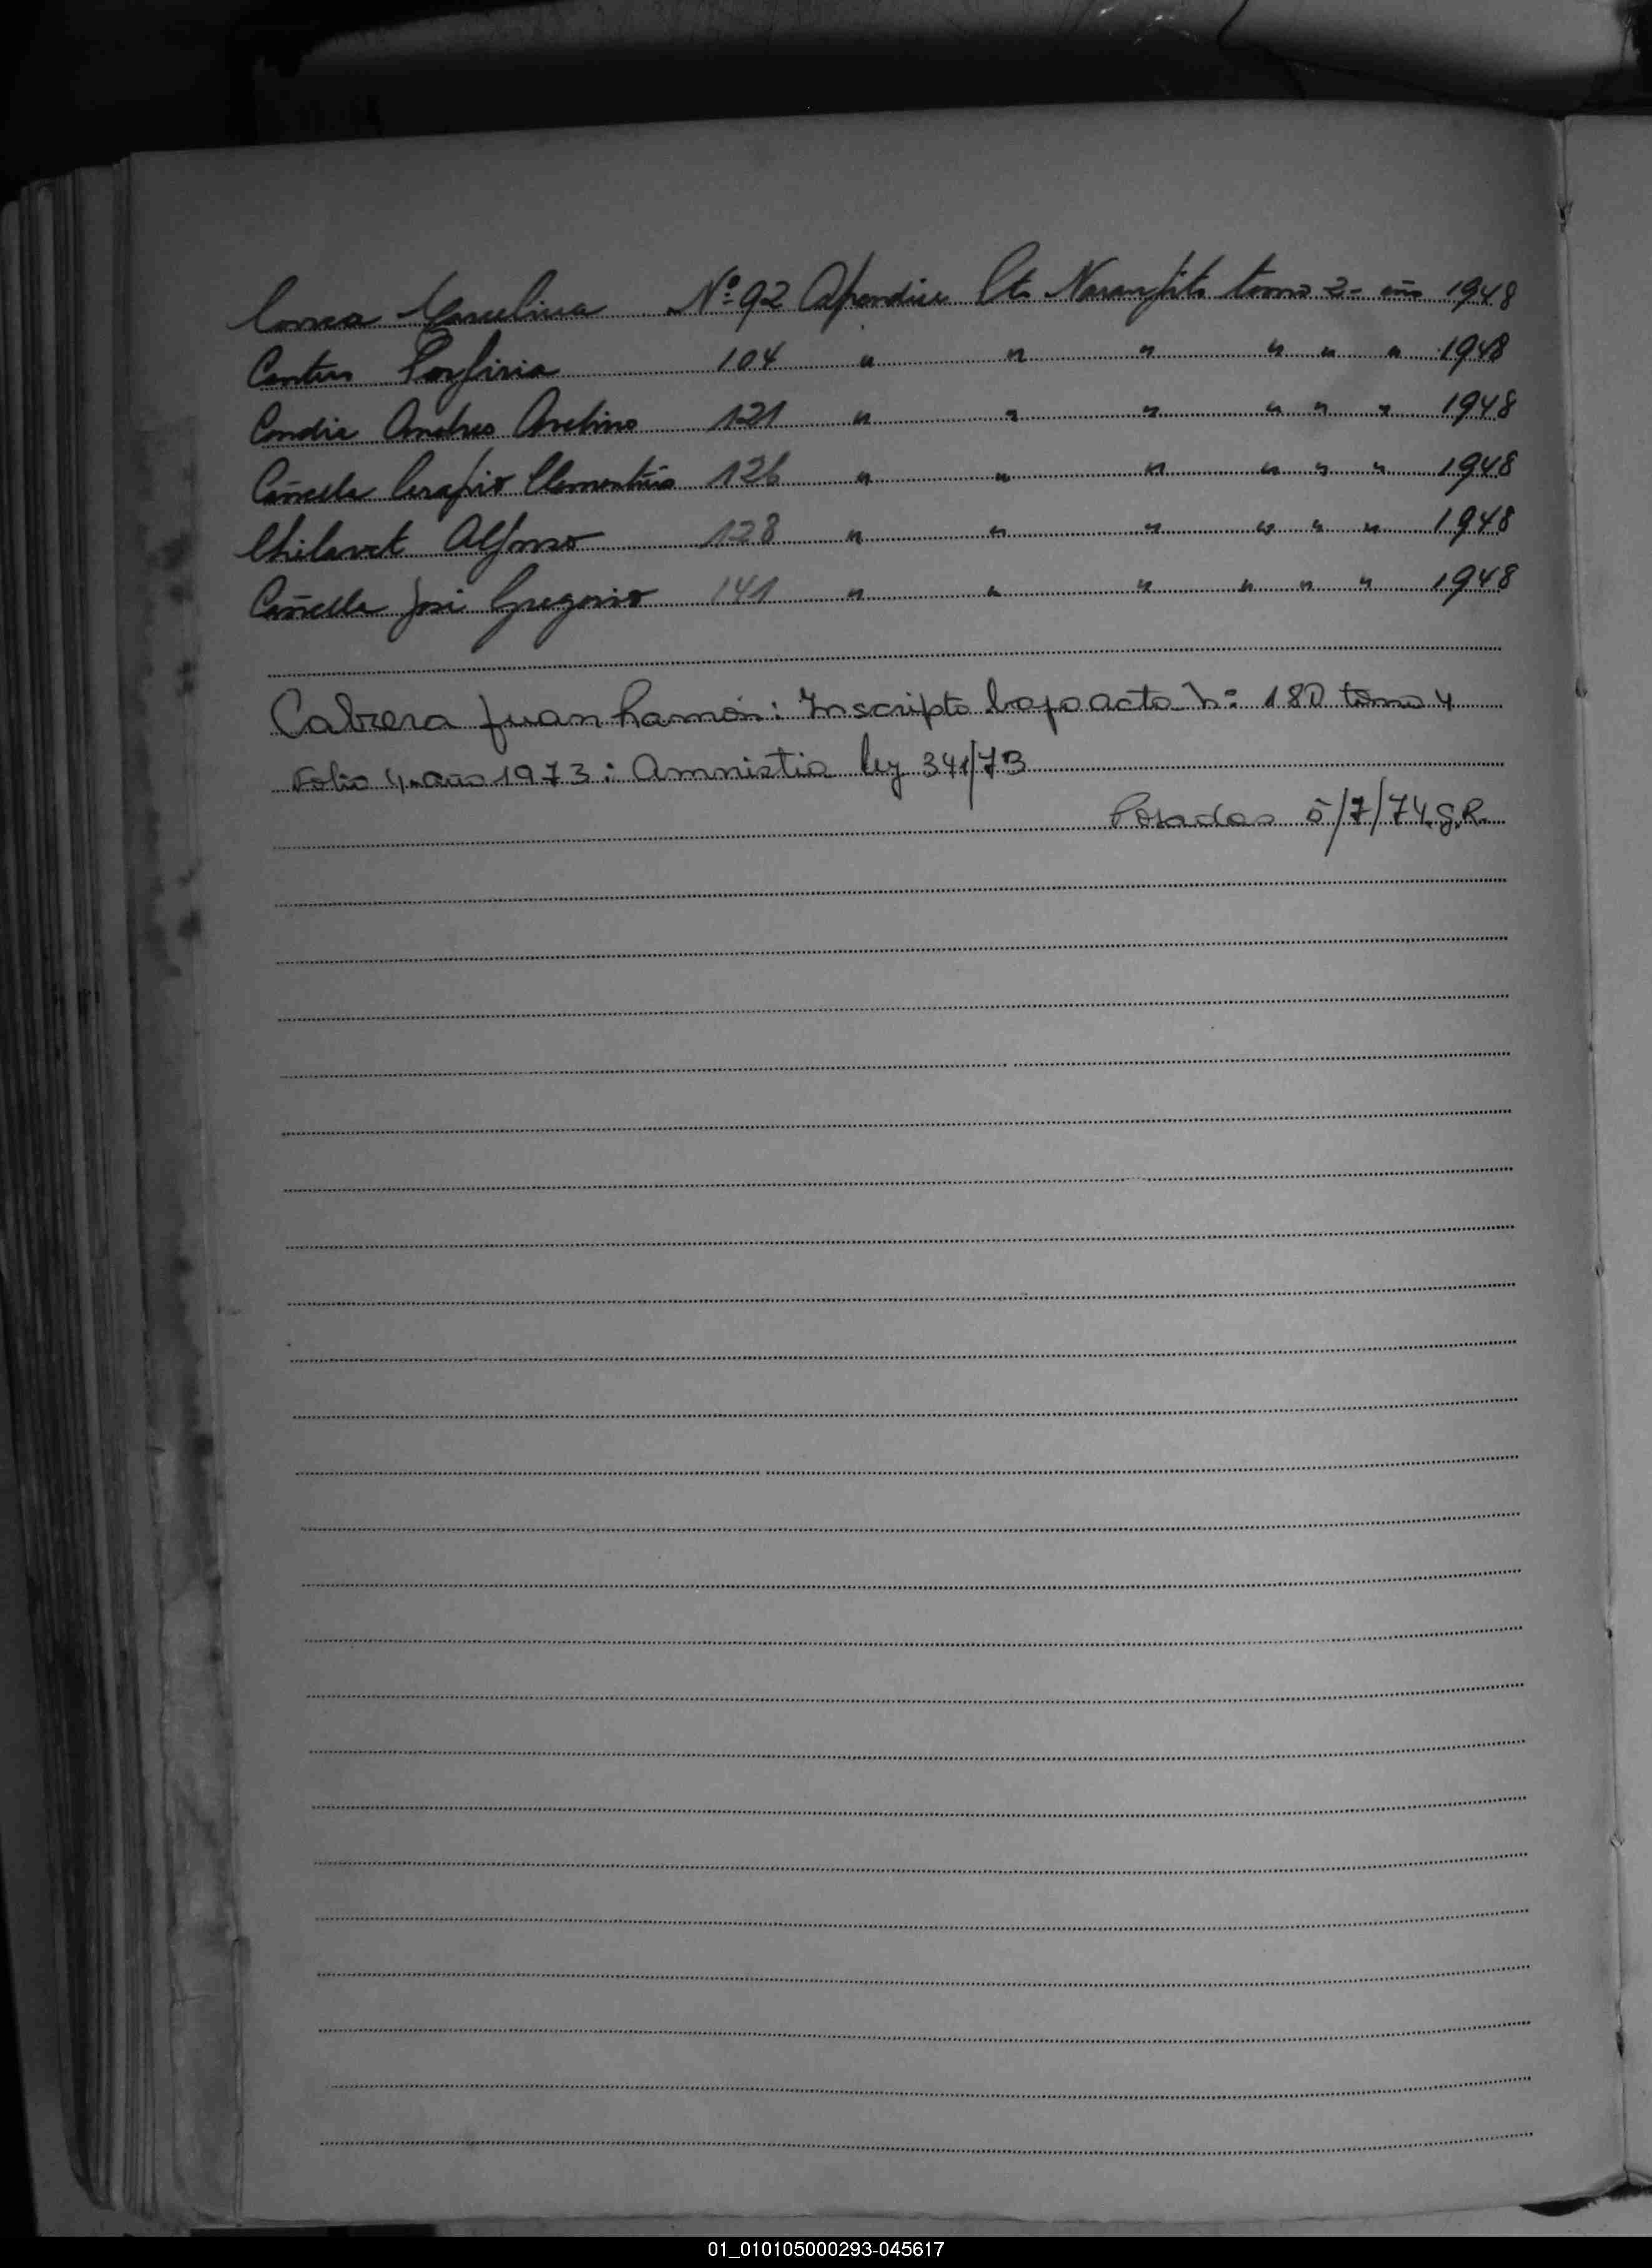 Correa Marcelina Nº 92 Apendice Pto Naranjito tomo 2- año 1948
Porfiria 104 " " " " " " 1948
Andres Avelino 121 " " " " " " 1948
Cañete Serapio Clementino 126 " " " " " " 1948
Chilavet Alfonso 128 " " " " " " 1948
Cañete José Gregorio 141 " " " " " " 1948
Cabrera Juan Ramón: Inscripto bajo acta n: 180 tomo 4
Folio 4. año 1973: Amnistia ley 341/73
Posadas 5/7/74.G.R.
01_010105000293-045617